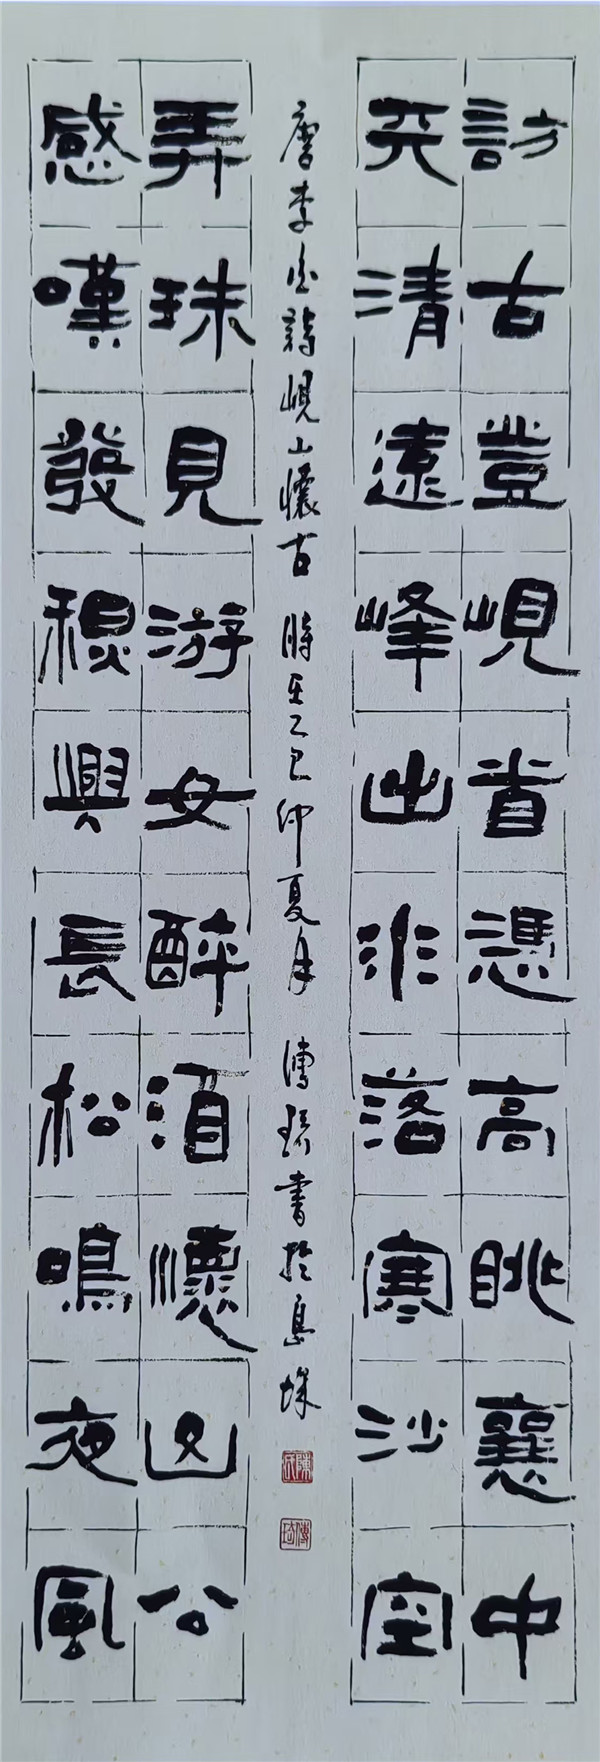 訪古登峴首憑高眺襄中
天清遠峰出水落寒沙空
唐李白詩峴山懷古 時在乙巳仲夏月 傅琦書於島城
弄珠見游女醉酒懷山公
感嘆發秋興長松鳴夜風
傅琦